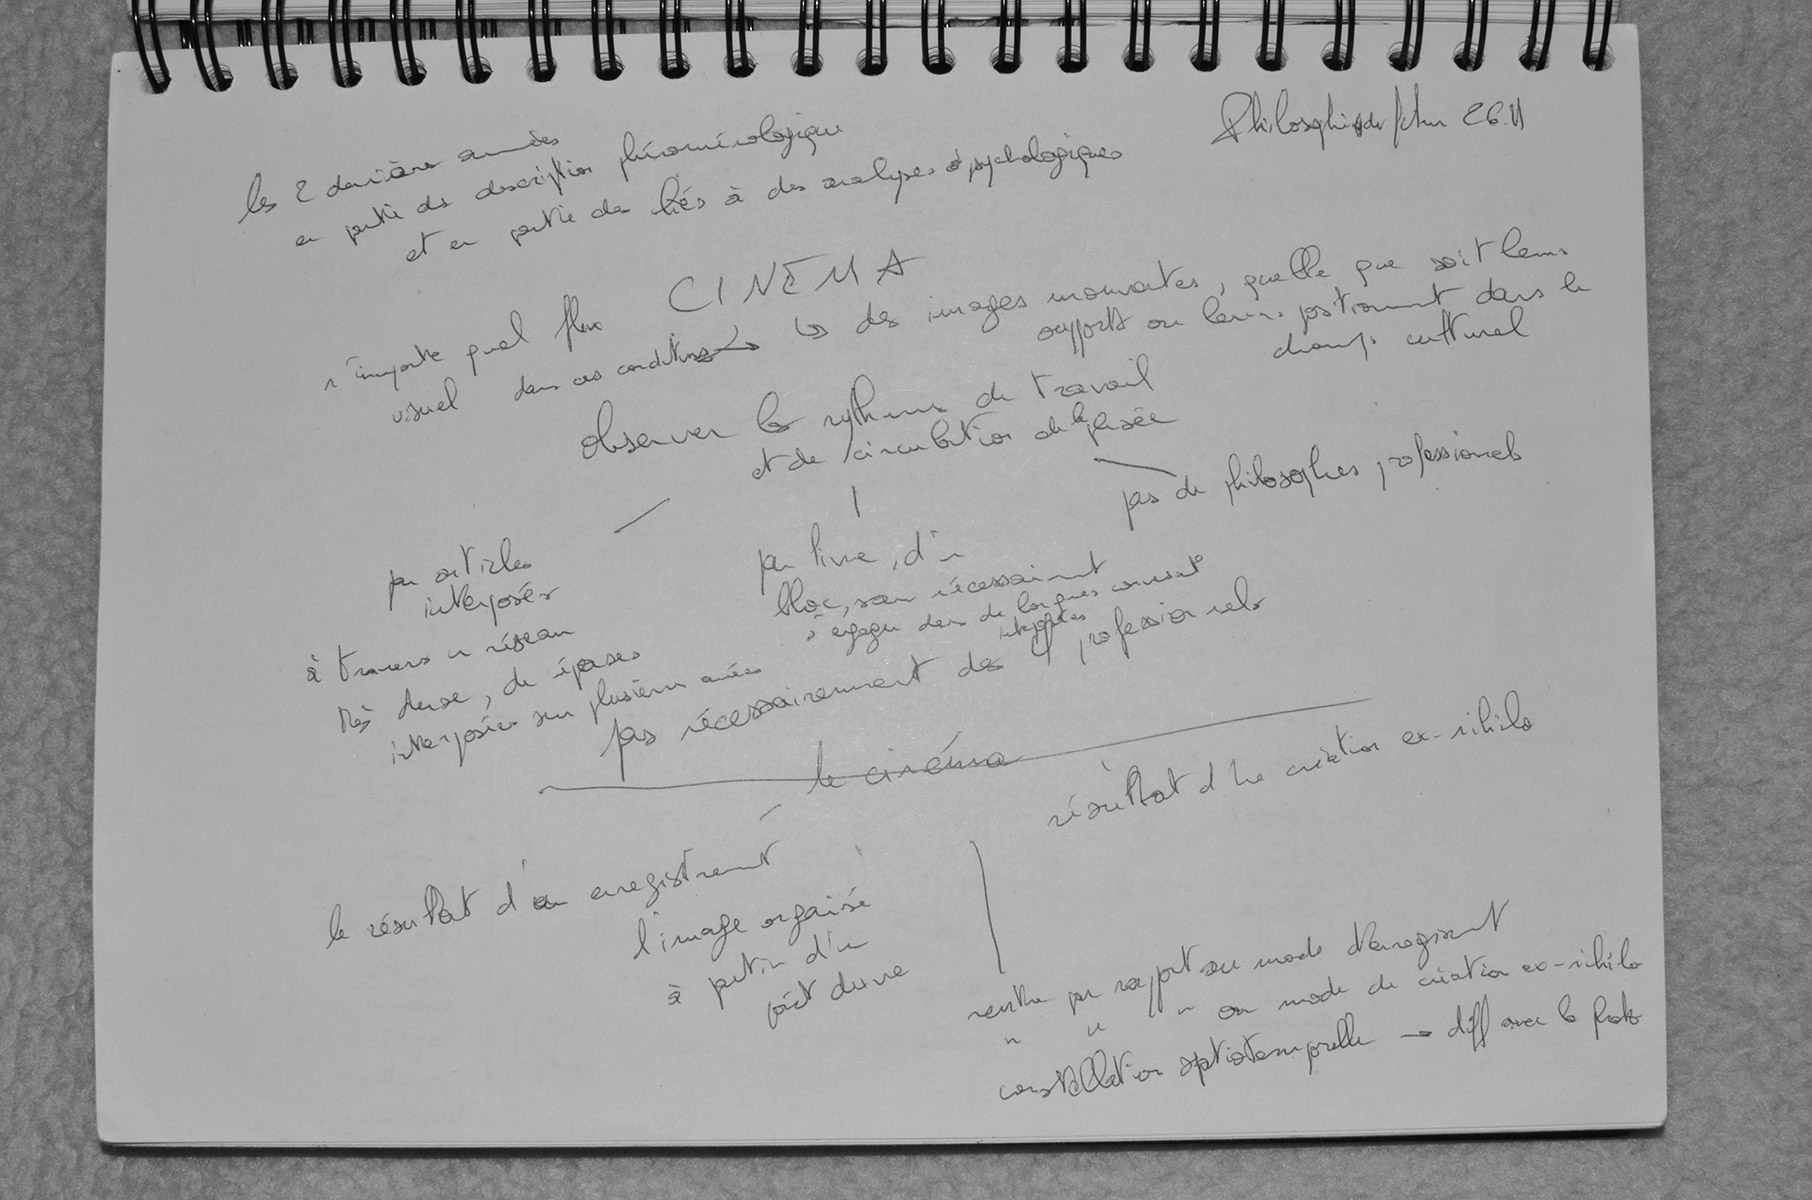 Philosophie 26.11
les 2 dernières années
en partie de description phénoménologique
et en partie de liés à des analyses psychologiques
CINÉMA
n'importe quel flux
visuel dans ces conditions
↳ des images mouvantes, quelle que soit leurs
supports ou leurs positionnement dans le
champ culturel
observer les rythmes de travail
et de circulation de la pensée
par articles
interposés
à travers un réseau
très dense, de épases
interposées sur plusieurs années
par livre, d'un
bloc, sans nécessairement
s'engager dans de longues
pas de philosophes professionnels
pas nécessairement des professionnels
le cinéma
le résultat d'un enregistrement
l'image organisé
à partir d'un
point de vue
résultat d'une création ex-nihilo
neutre par rapport au mode d'enregistrement
" " " au mode de création ex-nihilo
constellation spatiotemporelle → diff avec la photo